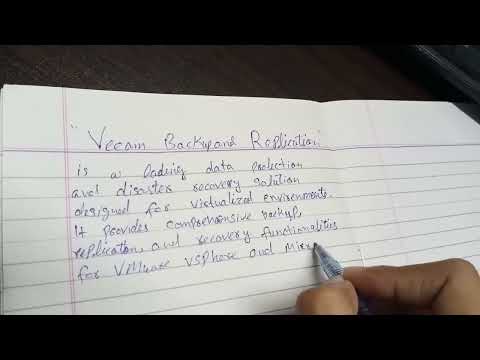 "Veeam Backup and Replication"
is a leading data protection
and disaster recovery solution
designed for virtualized environments.
It provides comprehensive backup,
replication, and recovery functionalities
for VMware vSphere and Micro